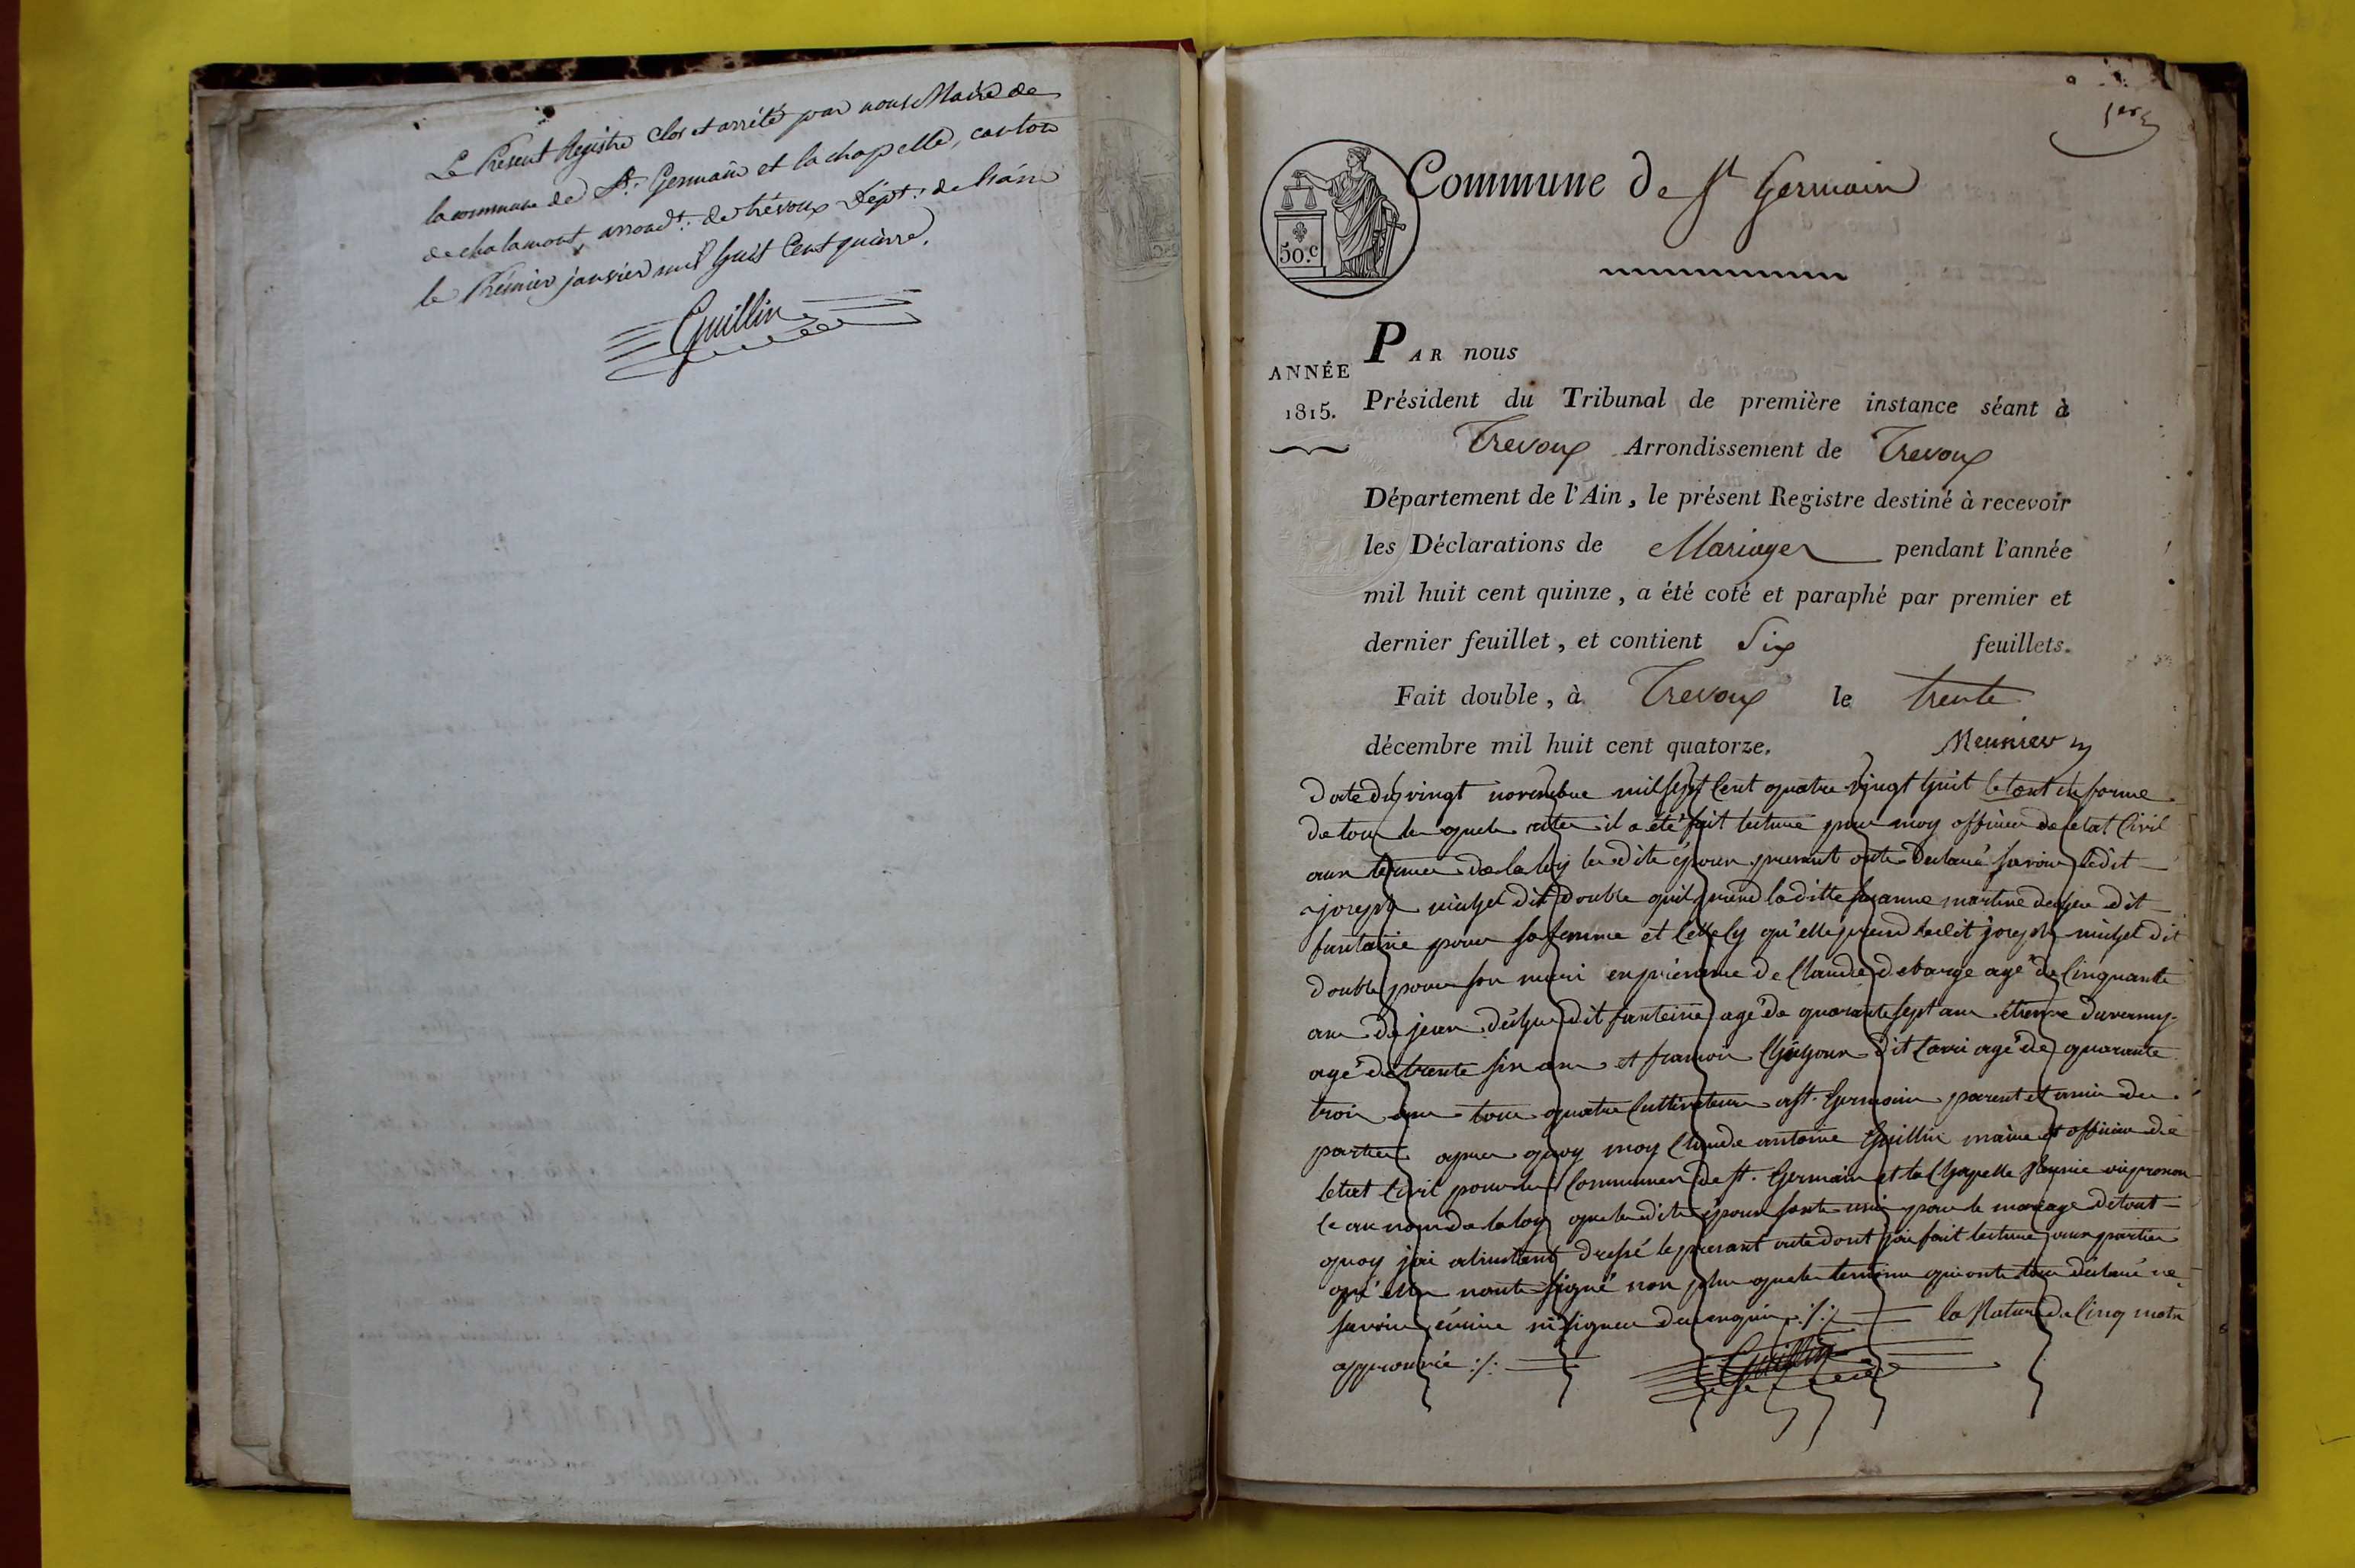 Le Présent Registre clos et arrêté par nous Maire de
la commune de St. Germain et la chapelle, canton
de chalamont, arrondt. de trévoux Dépt. de l'ain
le Prémier janvier mil huit Cent quinze.
Guillin
1er
Commune de St Germain
50.c
ANNÉE
1815.
PAR nous
Président du Tribunal de première instance séant à
Trevoux Arrondissement de Trevoux
Département de l'Ain, le présent Registre destiné à recevoir
les Déclarations de Mariages pendant l'année
mil huit cent quinze, a été coté et paraphé par premier et
dernier feuillet, et contient Six feuillets.
Fait double, à Trevoux le trente
décembre mil huit cent quatorze.
Meunier
date du vingt novembre mil sept Cent quatre vingt huit le tout en forme
de tous les quels actes il a été fait lecture par moy officier de letat Civil
aux termes de la loy les dits époux presant onts Declaré savoir ledit
joseph michel dit Double quil prend laditte suzanne martine dit
fantaine pour sa femme et Celle cy qu'elle prend ledit joseph michel dit
double pour son mari en présence de Claude debarge agé de Cinquante
ans de jean dit fanteine agé de quarante sept ans étienne duvernay
agé de trente six ans et francois dit agé de quarante
trois ans tous quatre Cultivateurs a st. Germain parent et amis des
parties apres quoy moy Claude antoine Guillin maire et officier de
letat Civil pour les Communes de st. Germain et la Chapelle Réunie ai pronon
cé au nom de la loy que les dits époux sonts unis par le mariage de tout
quoy jai dressé le presant acte dont jai fait lecture aux parties
qu'elles nonts signé non plus que les temoins qui onts tous déclaré ne
savoir écrire ni signer de ce requis ./. la Rature de Cinq mots
approuvée ./.
Guillin